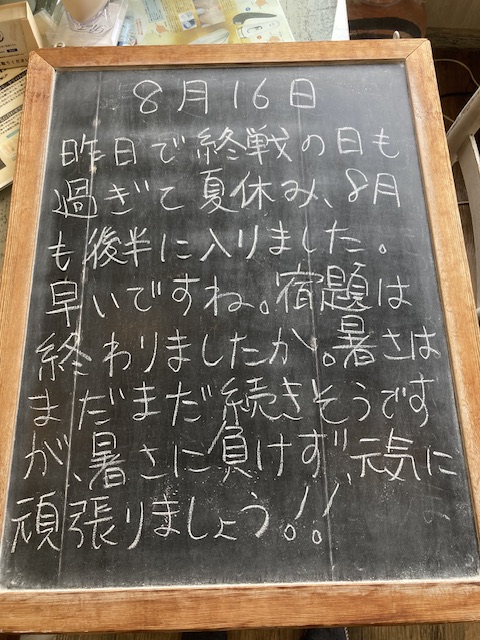 8月16日
昨日で終戦の日も
過ぎて夏休み、8月
も後半に入りました。
早いですね。宿題は
終わりましたか。暑さは
まだまだ続きそうです
が、暑さに負けず元気に
頑張りましょう!!